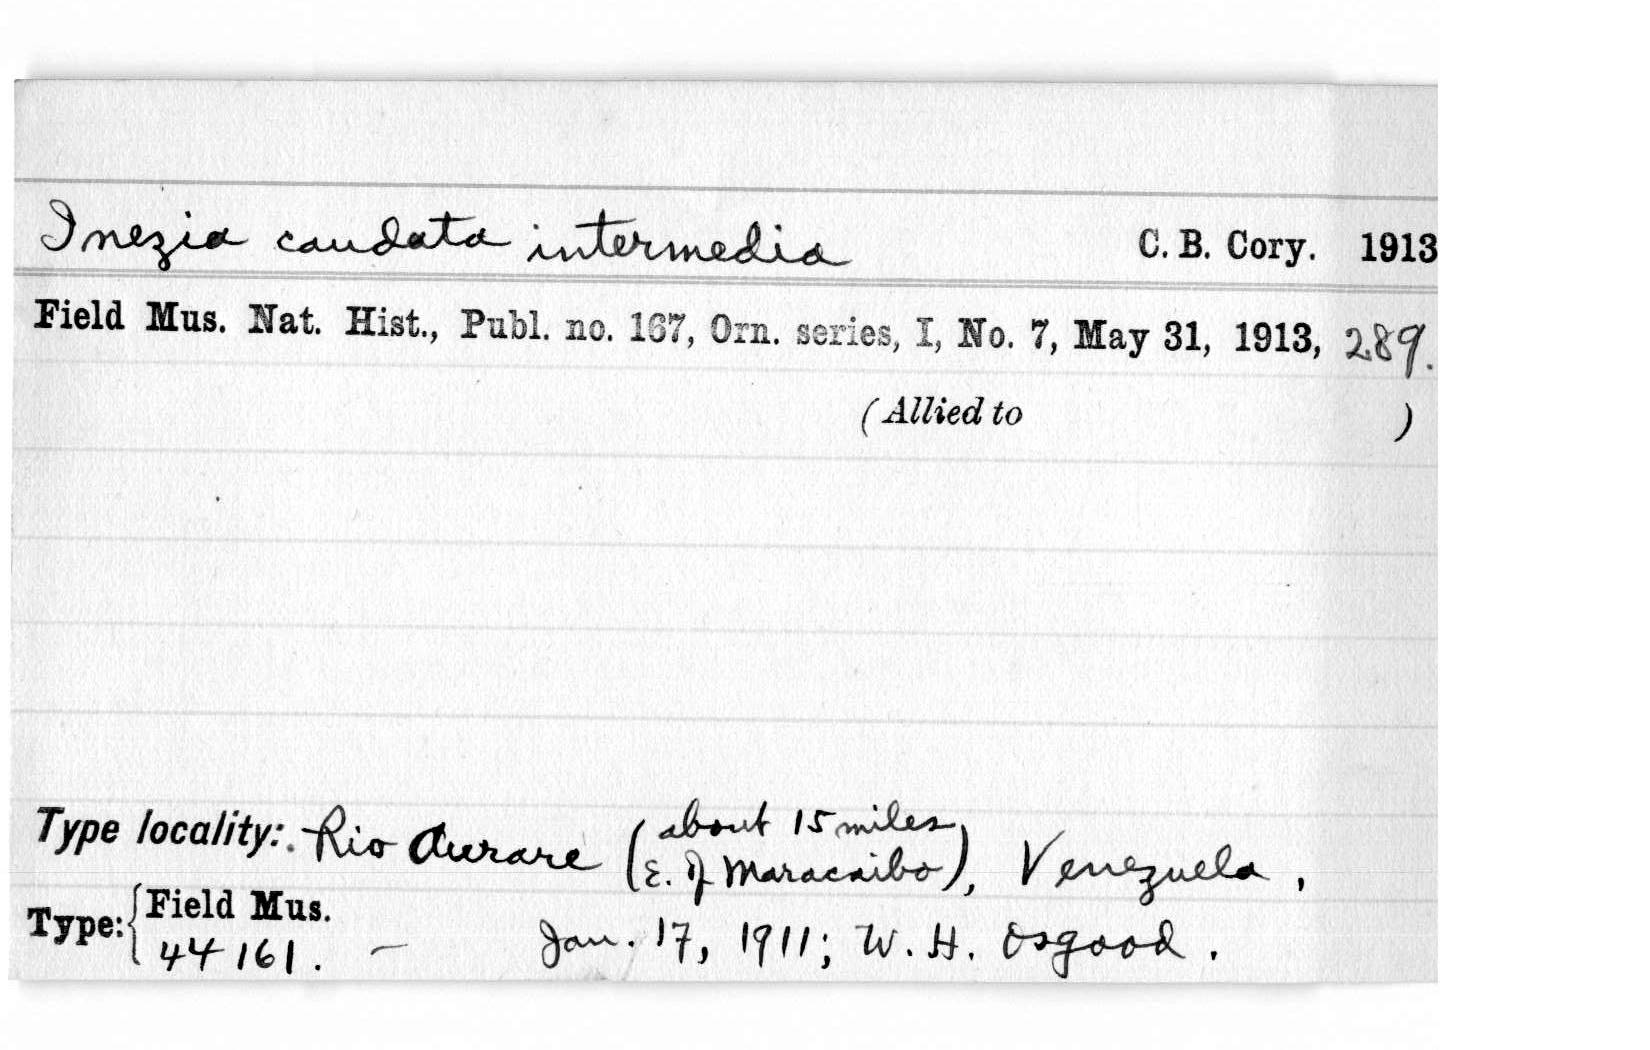 Inezia caudata intermedia C. B. Cory. 1913
Field Mus. Nat. Hist., Publ. no. 167, Orn. series, I, No. 7, May 31, 1913, 289.
(Allied to )
Type locality: Rio Aurare (about 15 miles
E. of Maracaibo), Venezuela,
Type: Field Mus.
44161. — Jan. 17, 1911; W. H. Osgood.